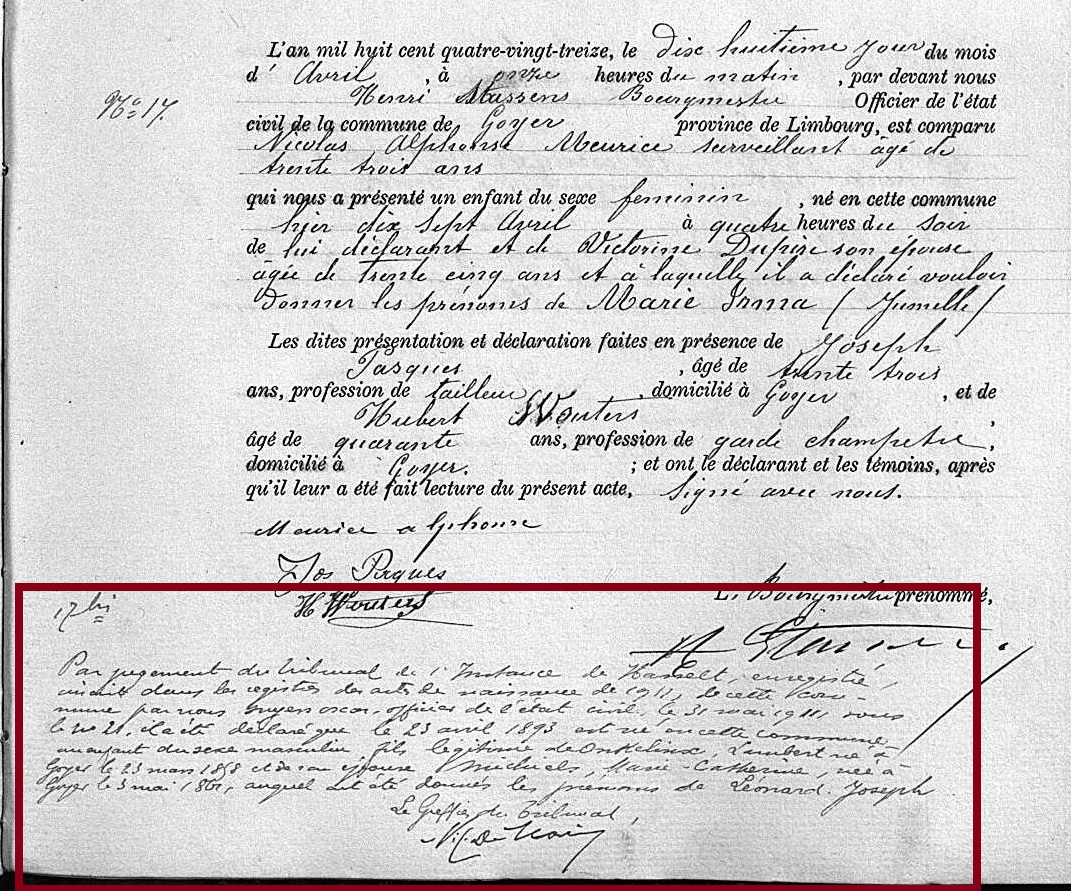 L'an mil huit cent quatre-vingt-treize, le dix huitième jour du mois
d' Avril , à onze heures du matin , par devant nous
Henri Stassens Bourgmestre Officier de l'état
No 17.
civil de la commune de Goyer province de Limbourg, est comparu
Nicolas Alphonse Meurice surveillant âgé de
trente trois ans
qui nous a présenté un enfant du sexe feminin , né en cette commune
hier dix sept Avril à quatre heures du soir
de lui déclarant et de Victorine Dupire son épouse
âgée de trente cinq ans et à laquelle il a déclaré vouloir
donner les prénoms de Marie Irma ( Jumelle )
Les dites présentation et déclaration faites en présence de Joseph
Pasques , âgé de trente trois
ans, profession de tailleur , domicilié à Goyer , et de
Hubert Wouters ,
âgé de quarante ans, profession de garde champetre ,
domicilié à Goyer. ; et ont le déclarant et les témoins, après
qu'il leur a été fait lecture du présent acte, signé avec nous.
Meurice alphonse
Jos Pasques
H Wouters
Le Bourgmestre prénommé,
17 bis
H Stassens
Par jugement du tribunal de 1e Instance de Hasselt, enregistré,
inscrit dans les registres des actes de naissance de 1911, de cette com-
mune par nous oscar, officier de l'état civil, le 31 mai 1911, sous
le no 21, il a été déclaré que le 23 avril 1893 est né en cette commune
un enfant du sexe masculin, fils légitime de Onkelinx, Lambert né à
Goyer le 23 mars 1858 et de son épouse Michiels, Marie-Catherine, née à
Goyer le 3 mai 1861, auquel ont été donnés les prénoms de Léonard Joseph
Le Greffier du Tribunal,